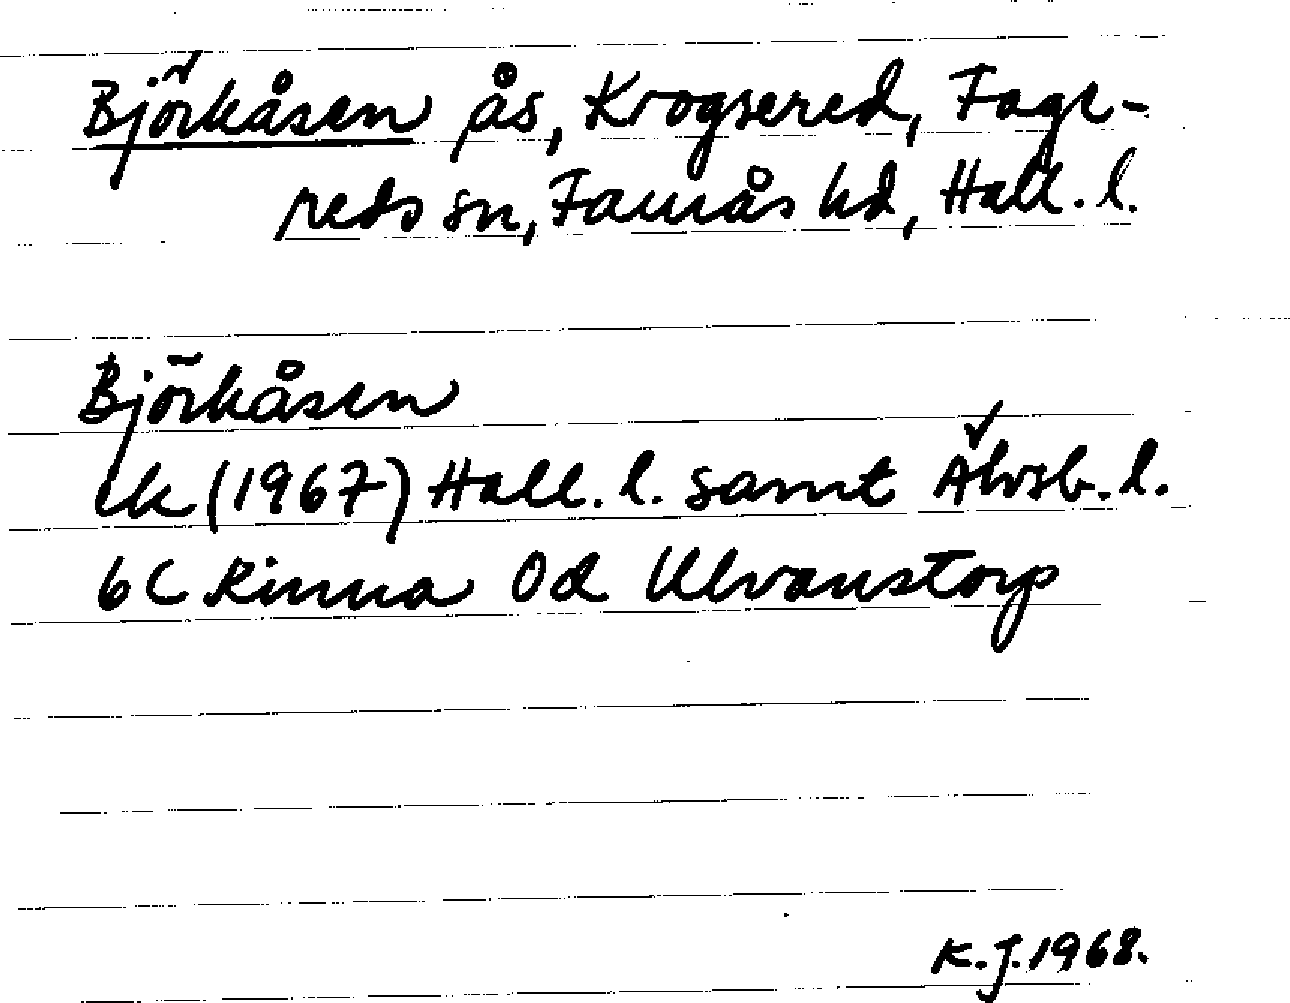 Björkåsen ås, Krogsered, Fage-
reds sn, Faurås hd, Hall. l.
Björkåsen
ek (1967) Hall. l. samt Älvsb. l.
6C Kinna 0d Ulvanstorp
K.J. 1968.